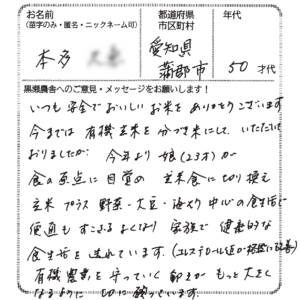 お名前
(苗字のみ・匿名・ニックネーム可)
都道府県
市区町村
年代
本多
愛知県
蒲郡市
50才代
黒瀬農舎へのご意見・メッセージをお願いします!
いつも安全でおいしいお米をありがとうございます
今までは有機玄米を分づき米にして、いただいて
おりましたが、今年より娘(23才)が
食の原点に目覚め 玄米食に切り換え
玄米プラス野菜・大豆・海そう中心の食生活で
便通もすこぶるよくなり 家族で健康的な
食生活を送れています。(コレステロール値が格段に改善)
有機農業を守っていく 動きが もっと大きく
なるように 切に願っています。